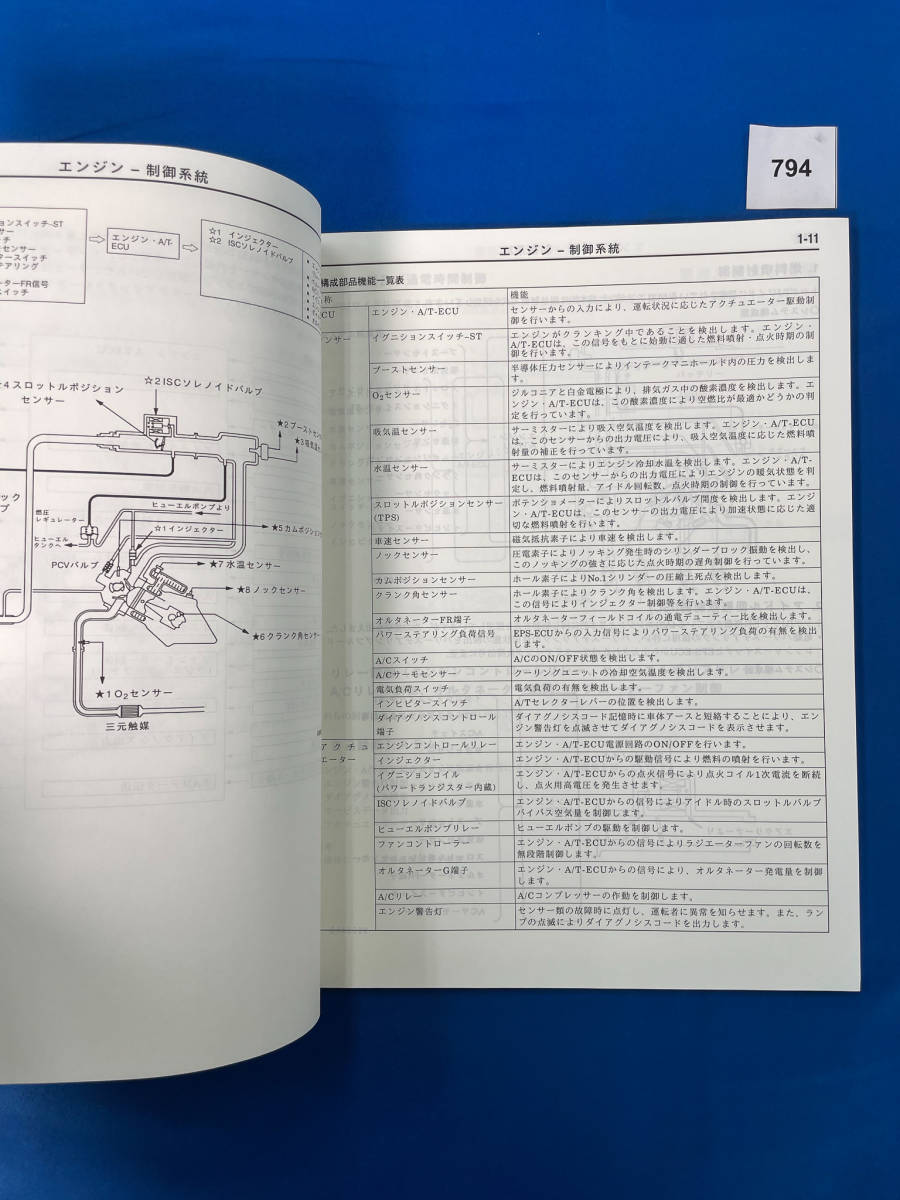 794
エンジン − 制御系統
ョンスイッチ-ST
サー
ッチ
センサー
タースイッチ
テアリング
ーターFR信号
スイッチ
エンジン・A/T-
ECU
☆1 インジェクター
☆2 ISCソレノイドバルブ
★4スロットルポジション
センサー
☆2ISCソレノイドバルブ
★2ブーストセン
★3吸気温セ
ック
ブ
燃圧
レギュレーター
ヒューエルポンプより
ヒューエル
タンクへ
☆1インジェクター
★5カムポジション
PCVバルブ
★7水温センサー
★8ノックセンサー
★6クランク角センサー
★1O₂センサー
三元触媒
エンジン − 制御系統
1-11
構成部品機能一覧表
称 機能
ECU エンジン・A/T-ECU センサーからの入力により、運転状況に応じたアクチュエーター駆動制
御を行います。
ンサー イグニションスイッチ-ST エンジンがクランキング中であることを検出します。エンジン・
A/T-ECUは、この信号をもとに始動に適した燃料噴射・点火時期の制
御を行います。
ブーストセンサー 半導体圧力センサーによりインテークマニホールド内の圧力を検出しま
す。
O₂センサー ジルコニアと白金電極により、排気ガス中の酸素濃度を検出します。エ
ンジン・A/T-ECUは、この酸素濃度により空燃比が最適かどうかの判
定を行っています。
吸気温センサー サーミスターにより吸入空気温度を検出します。エンジン・A/T-ECU
は、このセンサーからの出力電圧により、吸入空気温度に応じた燃料噴
射量の補正を行っています。
水温センサー サーミスターによりエンジン冷却水温を検出します。エンジン・A/T-
ECUは、このセンサーからの出力電圧によりエンジンの暖気状態を判
定し、燃料噴射量、アイドル回転数、点火時期の制御を行っています。
スロットルポジションセンサー ポテンショメーターによりスロットルバルブ開度を検出します。エンジ
(TPS) ン・A/T-ECUは、このセンサーの出力電圧により加速状態に応じた適
切な燃料噴射を行います。
車速センサー 磁気抵抗素子により車速を検出します。
ノックセンサー 圧電素子によりノッキング発生時のシリンダーブロック振動を検出し、
このノッキングの強さに応じた点火時期の遅角制御を行っています。
カムポジションセンサー ホール素子によりNo.1シリンダーの圧縮上死点を検出します。
クランク角センサー ホール素子によりクランク角を検出します。エンジン・A/T-ECUは、
この信号によりインジェクター制御等を行います。
オルタネーターFR端子 オルタネーターフィールドコイルの通電デューティー比を検出します。
パワーステアリング負荷信号 EPS-ECUからの入力信号によりパワーステアリング負荷の有無を検出
します。
A/Cスイッチ A/CのON/OFF状態を検出します。
A/Cサーモセンサー クーリングユニットの冷却空気温度を検出します。
電気負荷スイッチ 電気負荷の有無を検出します。
インヒビタースイッチ A/Tセレクターレバーの位置を検出します。
ダイアグノシスコントロール ダイアグノシスコード記憶時に車体アースと短絡することにより、エン
端子 ジン警告灯を点滅させてダイアグノシスコードを表示させます。
アクチュ エンジンコントロールリレー エンジン・A/T-ECU電源回路のON/OFFを行います。
エーター インジェクター エンジン・A/T-ECUからの駆動信号により燃料の噴射を行います。
イグニションコイル エンジン・A/T-ECUからの点火信号により点火コイル1次電流を断続
(パワートランジスター内蔵) し、点火用高電圧を発生させます。
ISCソレノイドバルブ エンジン・A/T-ECUからの信号によりアイドル時のスロットルバルブ
バイパス空気量を制御します。
ヒューエルポンプリレー ヒューエルポンプの駆動を制御します。
ファンコントローラー エンジン・A/T-ECUからの信号によりラジエーターファンの回転数を
無段階制御します。
オルタネーターG端子 エンジン・A/T-ECUからの信号により、オルタネーター発電量を制御
します。
A/Cリレー A/Cコンプレッサーの作動を制御します。
エンジン警告灯 センサー類の故障時に点灯し、運転者に異常を知らせます。また、ラン
プの点滅によりダイアグノシスコードを出力します。